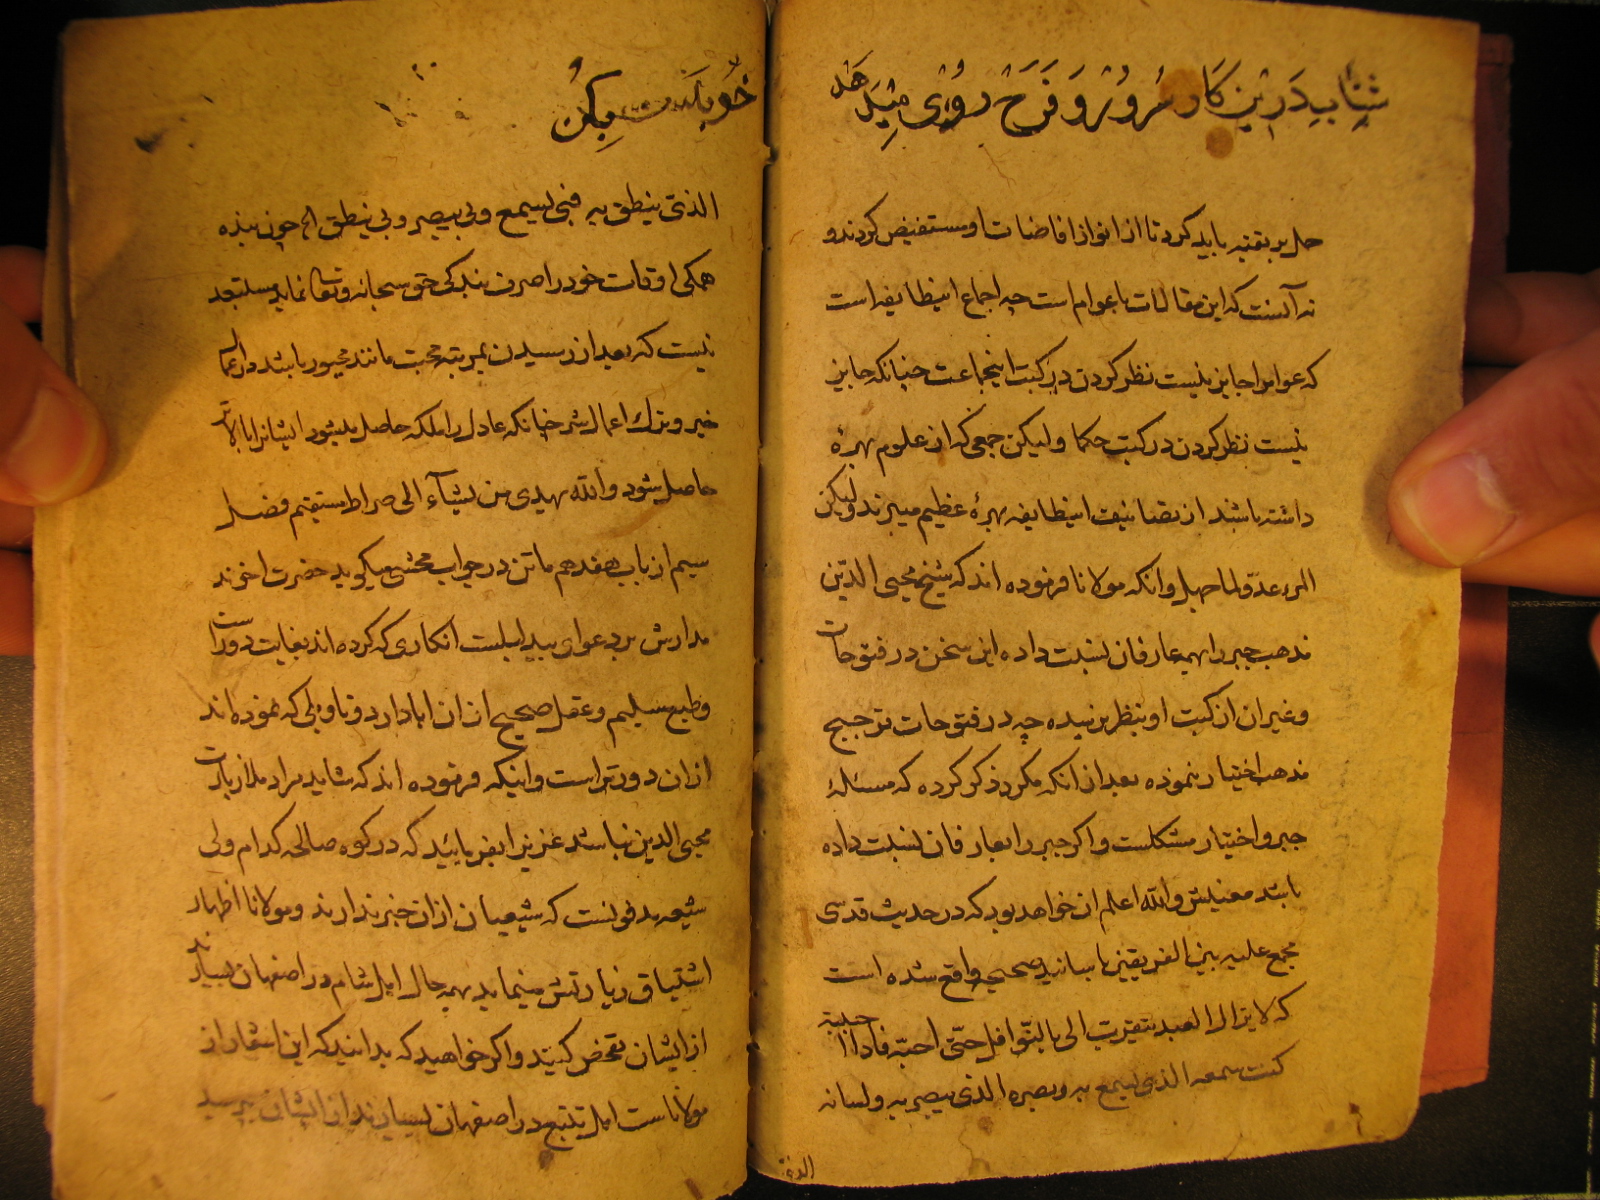 شتاب درین کار سرور و فرح روزی مثل هد
حل بر بقیه باید کرد تا از انواز افاضات او مستفیض کردند و
نه آنست که این مقالات با عوام است چه اجماع اینطایفه است
که عوام را جایز نیست نظر کردن در کتب اینجماعت چنانکه جایز
نیست نظر کردن در کتب حکما و لیکن جمعی که از علوم بهرهٔ
داشته باشند از تصانیف اینطایفه بهرهٔ عظیم میبرند ولیکن
المرء عدوّ لما جهل وانکه مولانا فرموده اند که شیخ محیی الدّین
مذهب جبر را بهمه عارفان نسبت داده این سخن در فتوحات
و غیر ان از کتب او بنظر نرسیده چه در فتوحات ترجیح
مذهب اختیار نموده بعد از انکه مکرر ذکر کرده که مسئلهٔ
جبر و اختیار مشکلست و اکر جبر را بعارفان نسبت داده
باشد معنیش والله اعلم ان خواهد بود که در حدیث قدسی
مجمع علیه بین الفریقین باسانید صحیحه واقع شده است
که لایزال العبد یتقرب الی بالنّوافل حتّی احبّه فاذا احببته
کنت سمعه الذی یسمع به و بصره الذی یبصر به و لسانه
الذی
خوبست بکن
الذی ینطق به فبی یسمع و بی یبصر و بی ینطق الخ چون بنده
همکی اوقات خود را صرف بندکی حق سبحانه وتعالی نماید مستبعد
نیست که بعد از رسیدن بمرتبه محبت مانند مجبور باشد در اعمال
خیر و ترک اعمال شر چنانکه عادل را ملکه حاصل میشود ایشانرا بالاتر
حاصل شود والله یهدی من یشآء الی صراط مستقیم فصل
سیم از باب هفدهم ماتن در جواب محشی میکوید حضرت اخوند
مدارش بر دعوای بیدلیلست انکاری که کرده اند بغایت دور است
و طبع سلیم و عقل صحیح از ان ابا دارد و تاویلی که نموده اند
از ان دورتر است و اینکه فرموده اند که شاید مراد ملا زیارت
محیی الدین نباشد عزیز ا بفرمایید که در کوه صالحه کدام ولی
شیعه مدفونست که شیعیان از ان خبر ندارند و مولانا اظهار
اشتیاق زیارتش مینماید بهمه حال اهل شام در اصفهان بسیارند
از ایشان تفحص کنید و اکر خواهید که بدانید که این اشعار از
مولاناست اهل تتبع در اصفهان بسیارند از ایشان بپرسید